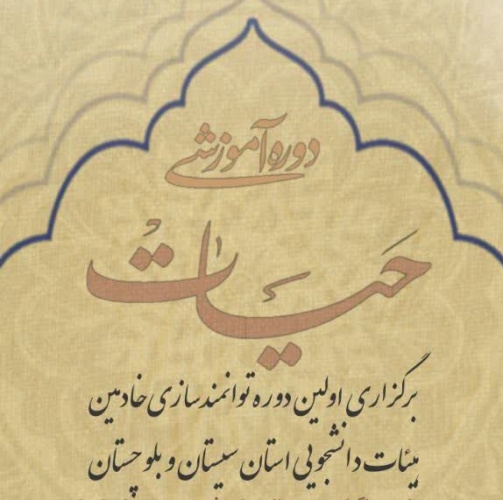 دوره آموزشی
حیات
برگزاری اولین دوره توانمندسازی خادمین
هیئات دانشجویی استان سیستان و بلوچستان